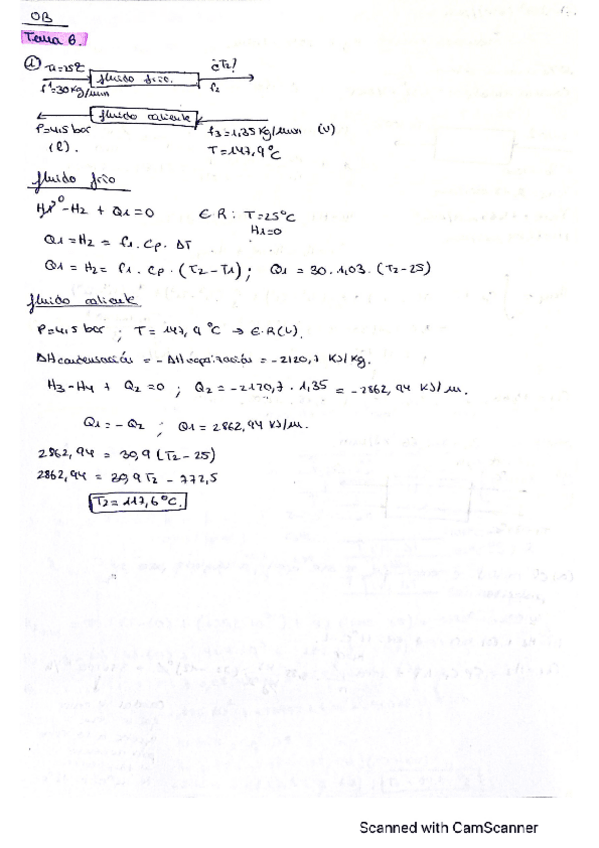 OB
Tema 6.
① T1=25ºC fluido frio. ¿T2?
f1=30 Kg/min f2
fluido caliente
P=4,5 bar f3=1,35 Kg/min (v)
(l). T=147,9ºC
fluido frio
H1⁰-H2 + Q1=0 E.R: T=25ºC
H1=0
Q1=H2= f1. Cp. ΔT
Q1= H2= f1. Cp. (T2-T1); Q1= 30.1,03. (T2-25)
fluido caliente
P=4,5 bar ; T= 147,9ºC → E.R(L).
ΔHcondensación = -ΔHvaporización = -2120,7 KJ/Kg.
H3-H4 + Q2=0 ; Q2= -2120,7 · 1,35 = -2862,94 KJ/m.
Q1=-Q2 ; Q1= 2862,94 KJ/m.
2862,94 = 30,9 (T2-25)
2862,94 = 30,9 T2 - 772,5
T2= 117,6ºC.
Scanned with CamScanner